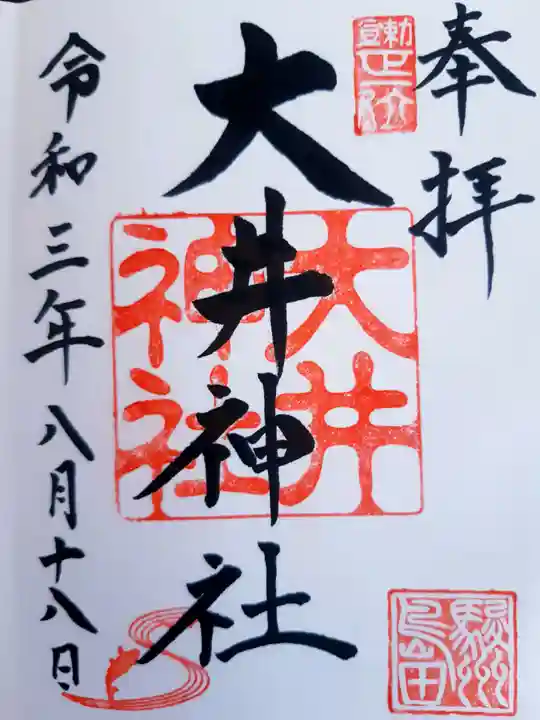 奉拝
大井神社
大井
神社
駿州
島田
令和三年八月十八日